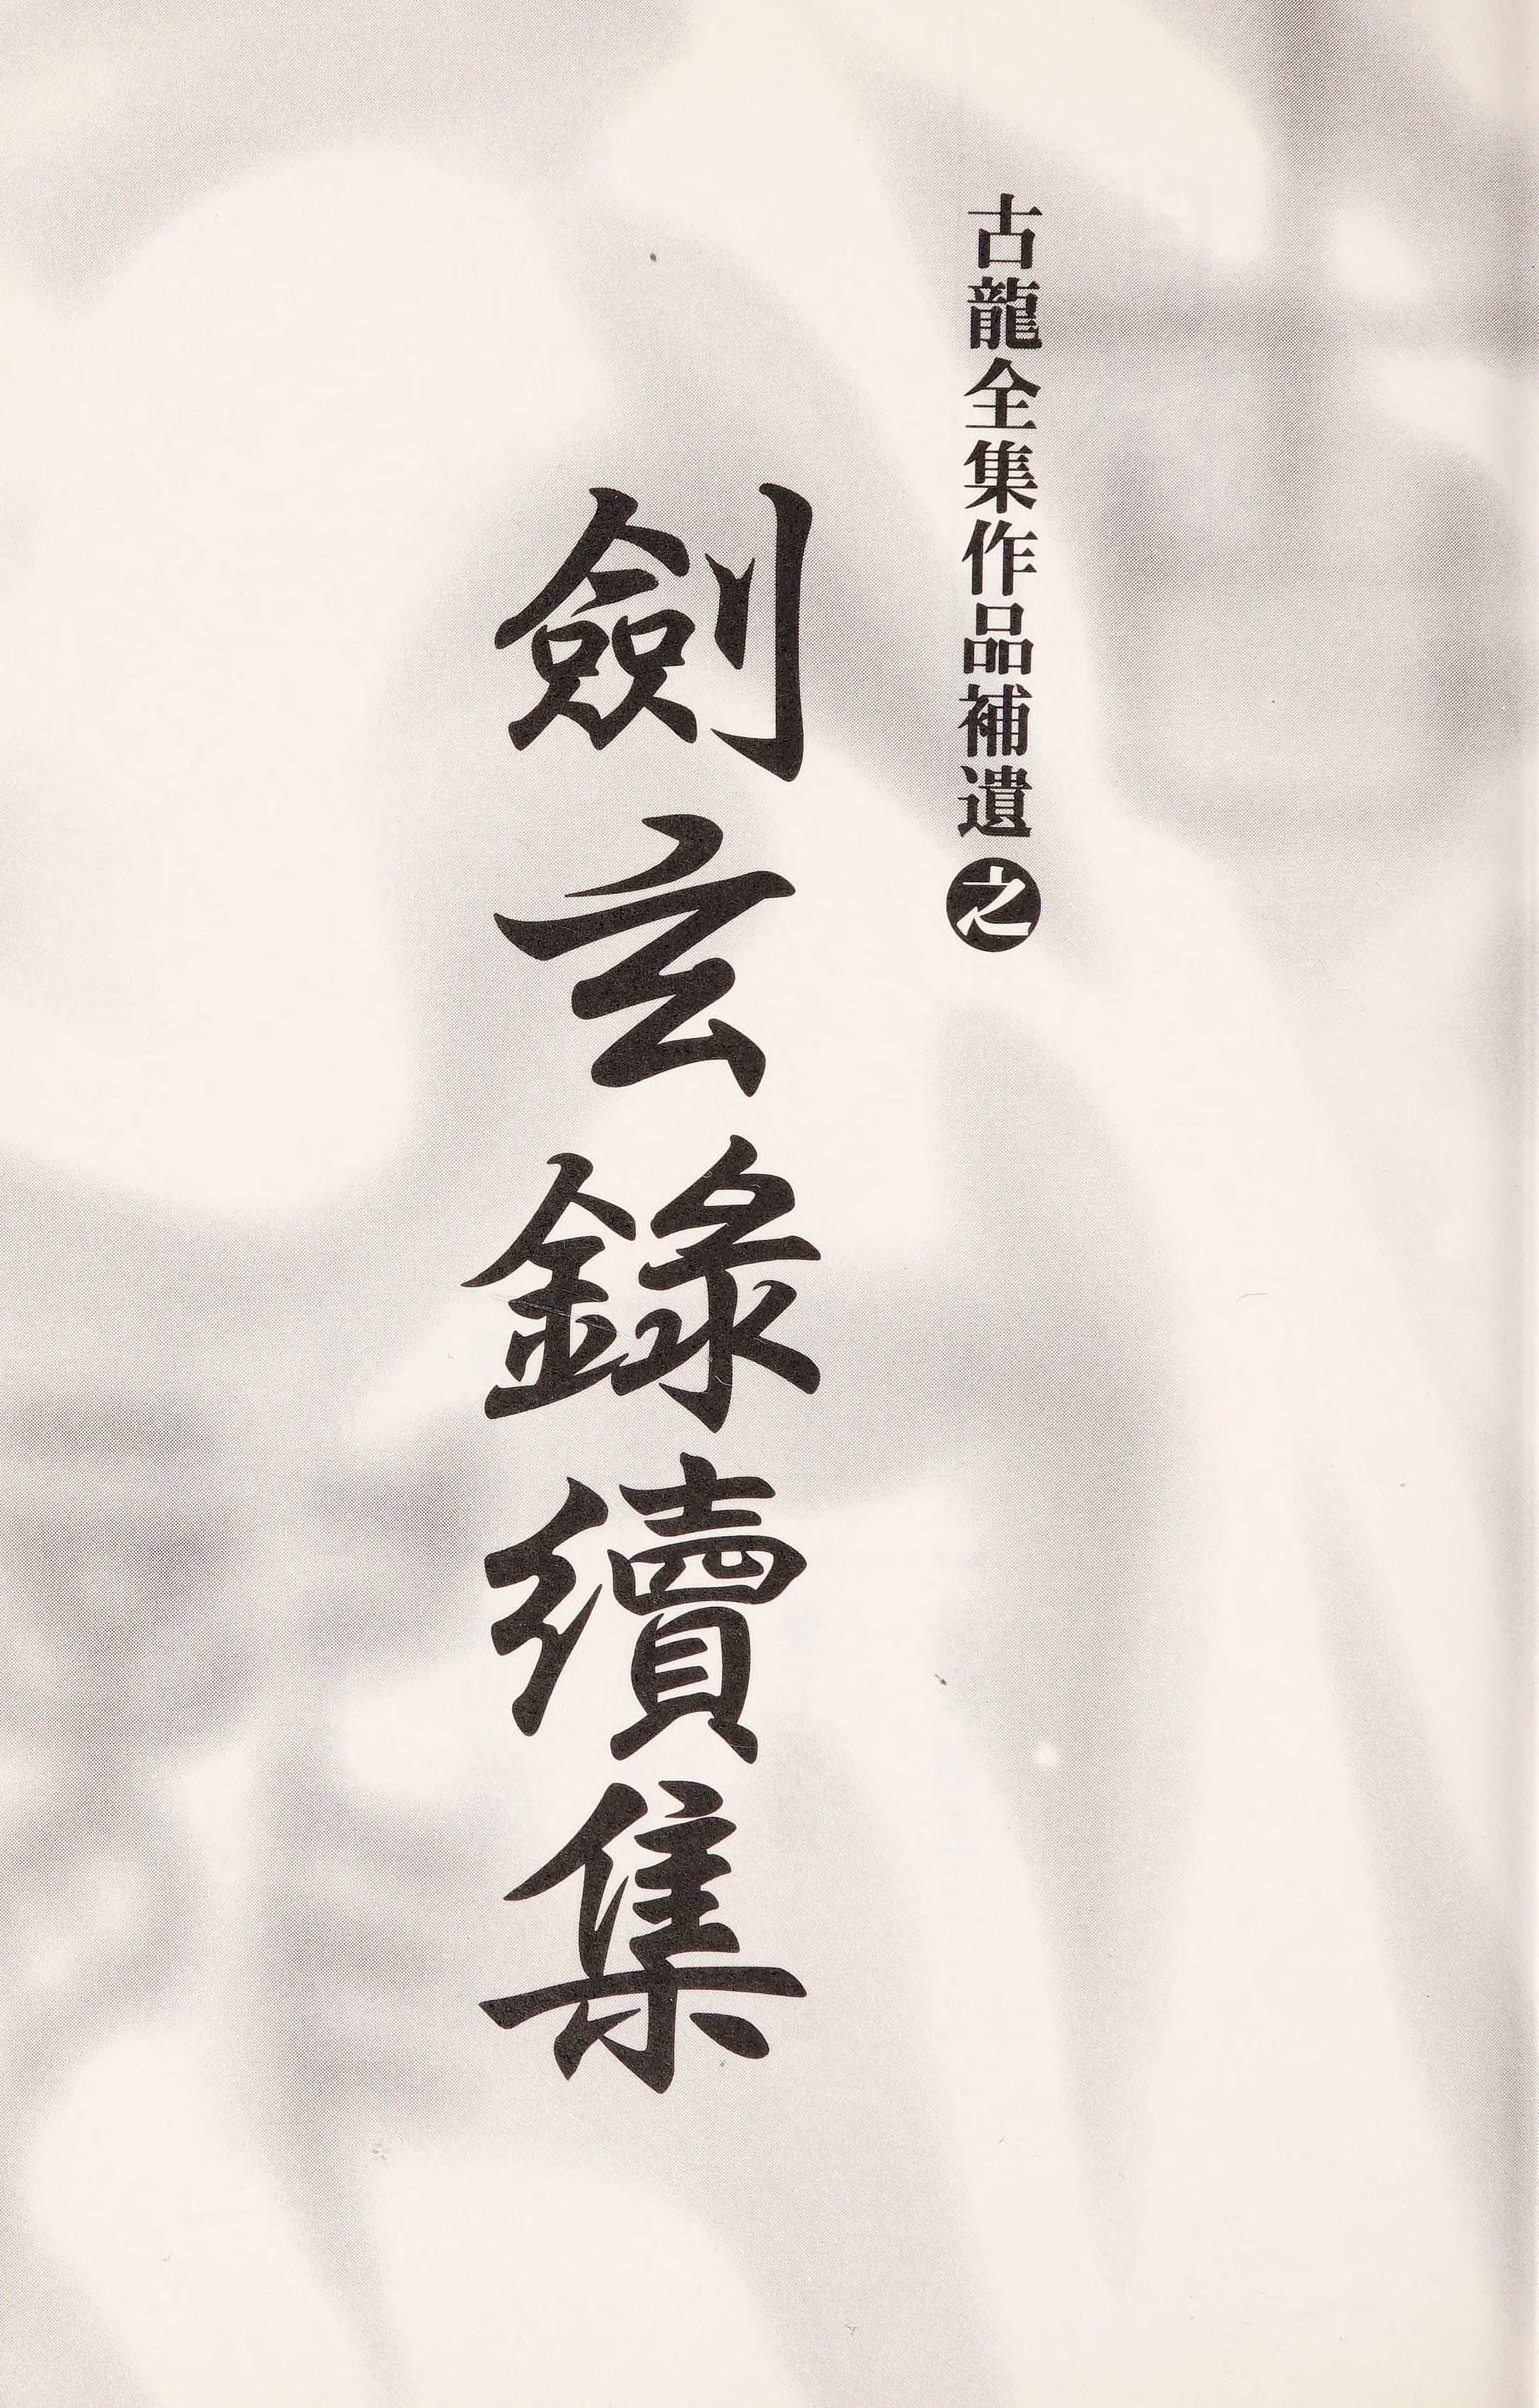 古龍全集作品補遺之
劍玄錄續集